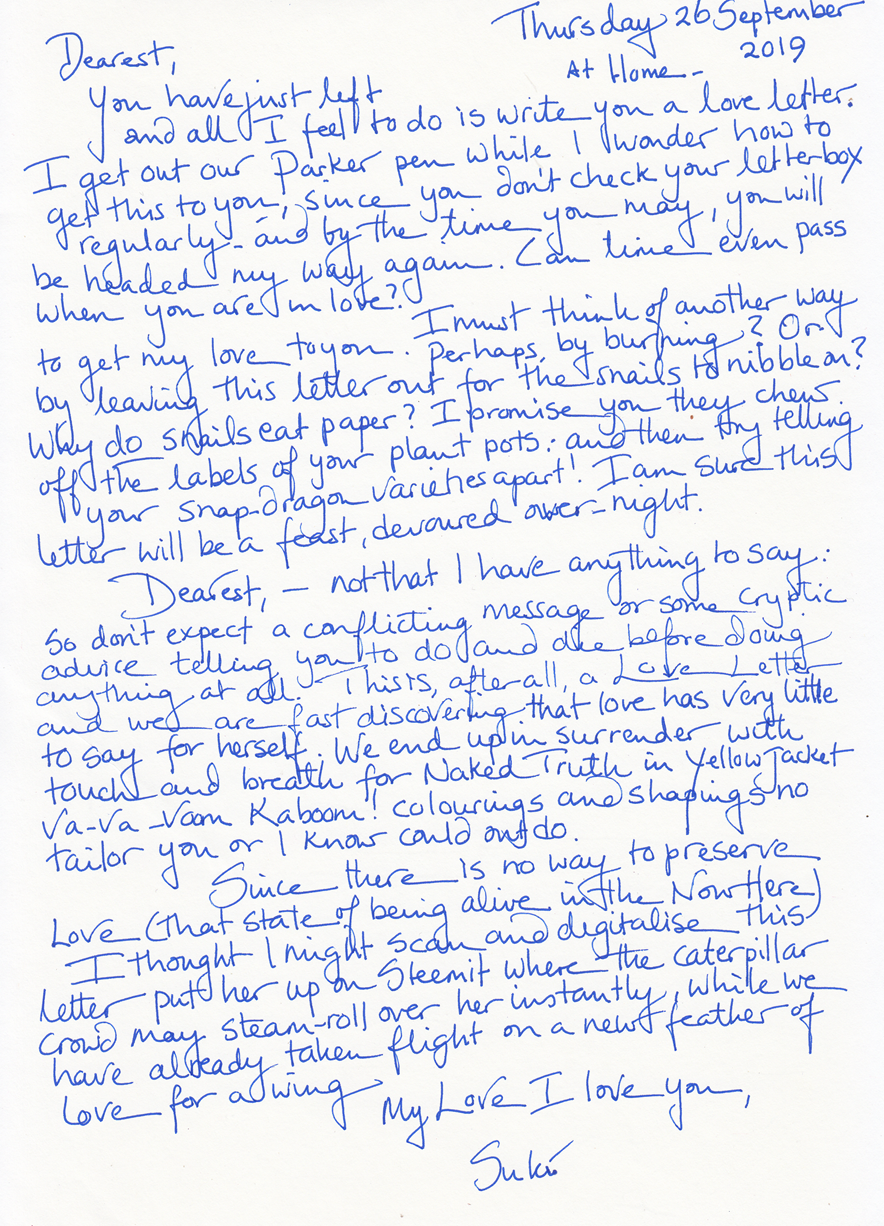 Thursday 26 September
2019
At Home -
Dearest,
You have just left
and all I feel to do is write you a love letter.
I get out our Parker pen while I wonder how to
get this to you, since you don't check your letterbox
regularly - and by the time you may, you will
be headed my way again. Can time even pass
when you are in love?
I must think of another way
to get my love to you. Perhaps, by burning? Or
by leaving this letter out for the snails to nibble on?
Why do snails eat paper? I promise you they chew
off the labels of your plant pots: and then try telling
your snap-dragon varieties apart! I am sure this
letter will be a feast, devoured over-night.
Dearest, - not that I have anything to say:
so don't expect a conflicting message or some cryptic
advice telling you to do and die before doing
anything at all. - This is, after all, a Love Letter
and we are fast discovering that love has very little
to say for herself. We end up in surrender with
touch and breath for Naked Truth in Yellow Jacket
Va-Va-Voom Kaboom! colourings and shapings no
tailor you or I know could out do.
Since there is no way to preserve
Love (that state of being alive in the Now Here)
I thought I might scan and digitalise this
letter put her up on Steemit where the caterpillar
crowd may steam-roll over her instantly, while we
have already taken flight on a new feather of
love for a wing
My Love I love you,
Suki